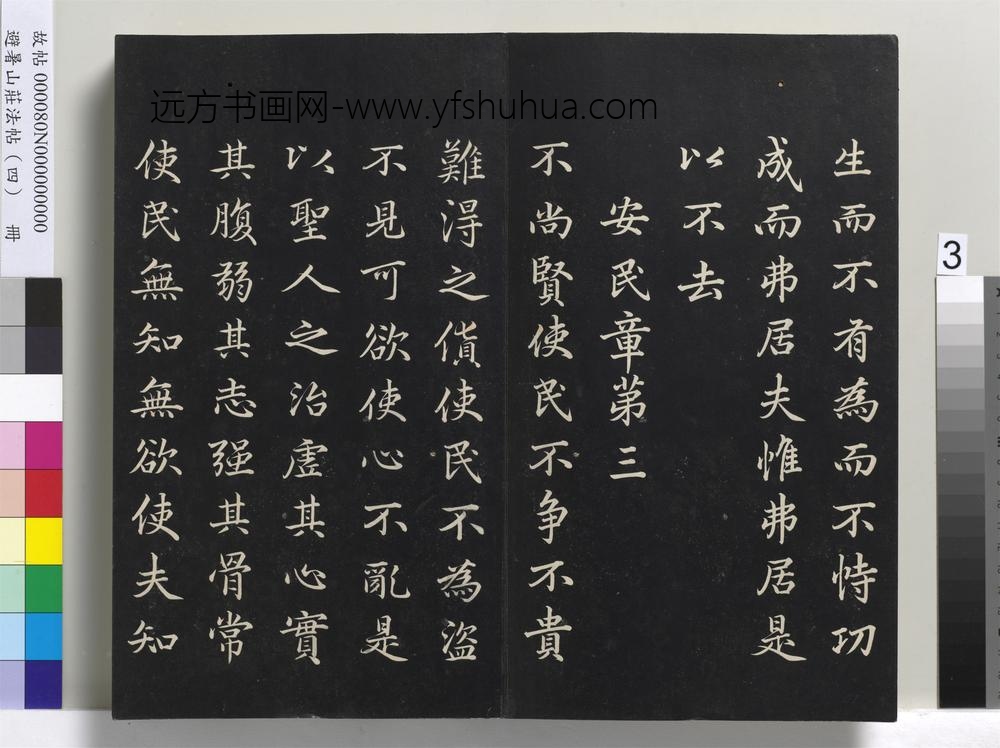 生而不有為而不恃功
成而弗居夫惟弗居是
以不去
安民章第三
不尚賢使民不争不貴
難得之貨使民不為盜
不見可欲使心不亂是
以聖人之治虛其心實
其腹弱其志强其骨常
使民無知無欲使夫知
远方书画网-www.yfshuhua.com
故帖 000080N000000000
避暑山莊法帖（四） 冊
3